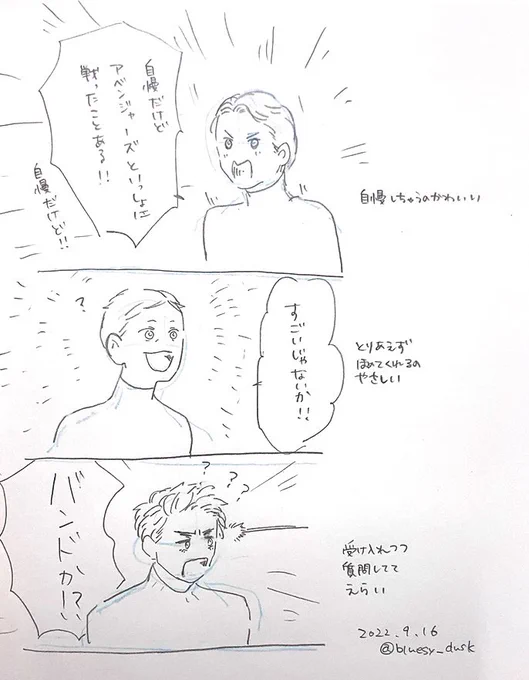 自慢だけど
アベンジャーズといっしょに
戦ったことある!!
自慢だけど!!
自慢しちゃうのかわいい
?
すごいじゃないか!!
とりあえず
ほめてくれるの
やさしい
? ? ? ?
バンドか!?
受け入れつつ
質問してて
えらい
2022.9.16
@bluesy_dusk